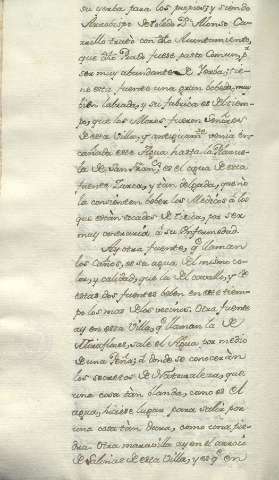 su yerba para los propios; y siendo
Arzobispo de Toledo Dn. Alonso Ca-
rrillo trató con dho Ayuntamiento,
que dho Prado fuese pasto comun, pr.
ser muy abundante de Yerba; tie-
ne esta fuente una gran bobeda, mui
bien labrada, y su fabrica es del tiem-
po, que los Moros fueron Señores
de esta Villa, y antiguamte. venia en-
cañada este Agua hasta la Plazue-
la de San Franco.; es el agua de esta
fuente Zarca, y tan delgada, que no
la consienten beber los Medicos à los
que están tocados de Tisica, por ser
muy contraria à su enfermedad.
Ay otra fuente, q. llaman
los Caños, es su agua del mismo co-
lor, y calidad, que la del corralo, y de
estas dos fuentes beben en este tiem-
po los mas de los vecinos. Otra fuente
ay en esta Villa, q. llaman la de
Miraflores, sale el Agua por medio
de una Peña; de donde se conoceràn
los secretos de Naturaleza, que
una cosa tan blanda, como es el
agua, hiciese lugar para salir por
una cosa tan dura, como una pie-
dra. Otra maravilla ay en el arroio
de Salinas de esta Villa, y es q. en